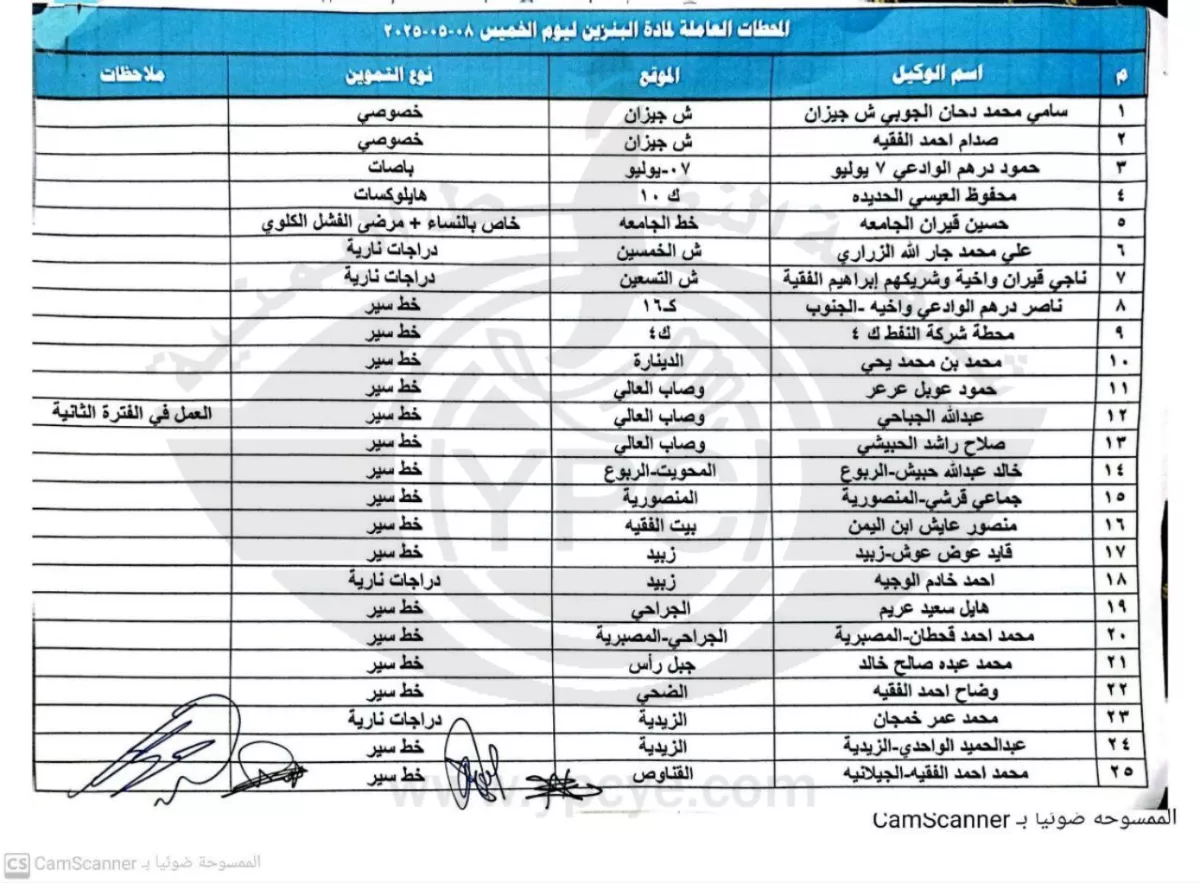 المحطات العاملة لمادة البنزين ليوم الخميس ٠٨-٠٥-٢٠٢٥
م اسم الوكيل الموقع نوع التموين ملاحظات
١ سامي محمد دحان الجوبي ش جيزان ش جيزان خصوصي
٢ صدام احمد الفقيه ش جيزان خصوصي
٣ حمود درهم الوادعي ٧ يوليو ٠٧-يوليو باصات
٤ محفوظ العيسي الحديده ك ١٠ هايلوكسات
٥ حسين قيران الجامعه خط الجامعه خاص بالنساء + مرضى الفشل الكلوي
٦ علي محمد جار الله الزراري ش الخمسين دراجات نارية
٧ ناجي قيران واخية وشريكهم إبراهيم الفقية ش التسعين دراجات نارية
٨ ناصر درهم الوادعي واخيه -الجنوب كـ١٦ خط سير
٩ محطة شركة النفط ك ٤ ك٤ خط سير
١٠ محمد بن محمد يحي الدينارة خط سير
١١ حمود عوبل عرعر وصاب العالي خط سير
١٢ عبدالله الجباحي وصاب العالي خط سير العمل في الفترة الثانية
١٣ صلاح راشد الحبيشي وصاب العالي خط سير
١٤ خالد عبدالله حبيش-الربوع المحويت-الربوع خط سير
١٥ جماعي قرشي-المنصورية المنصورية خط سير
١٦ منصور عايش ابن اليمن بيت الفقيه خط سير
١٧ قايد عوض عوش-زبيد زبيد خط سير
١٨ احمد خادم الوجيه زبيد دراجات نارية
١٩ هايل سعيد عريم الجراحي خط سير
٢٠ محمد احمد قحطان-المصبرية الجراحي-المصبرية خط سير
٢١ محمد عبده صالح خالد جبل رأس خط سير
٢٢ وضاح احمد الفقيه الضحي خط سير
٢٣ محمد عمر خمجان الزيدية دراجات نارية
٢٤ عبدالحميد الواحدي-الزيدية الزيدية خط سير
٢٥ محمد احمد الفقيه-الجيلانيه القناوص خط سير
YPC
www.ypcye.com
الممسوحه ضوئيا بـ CamScanner
CS الممسوحة ضوئيا بـ CamScanner